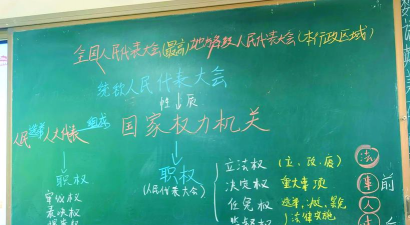 全国人民代表大会(最高)地方各级人民代表大会(本行政区域)
统称人民代表大会
性质
人民 选举 人大代表 组成 国家权力机关
职权
审议权
表决权
职权
(人民代表大会)
立法权
决定权 重大事项
任免权 选举、
监督权 法律实施
法
事 前
人